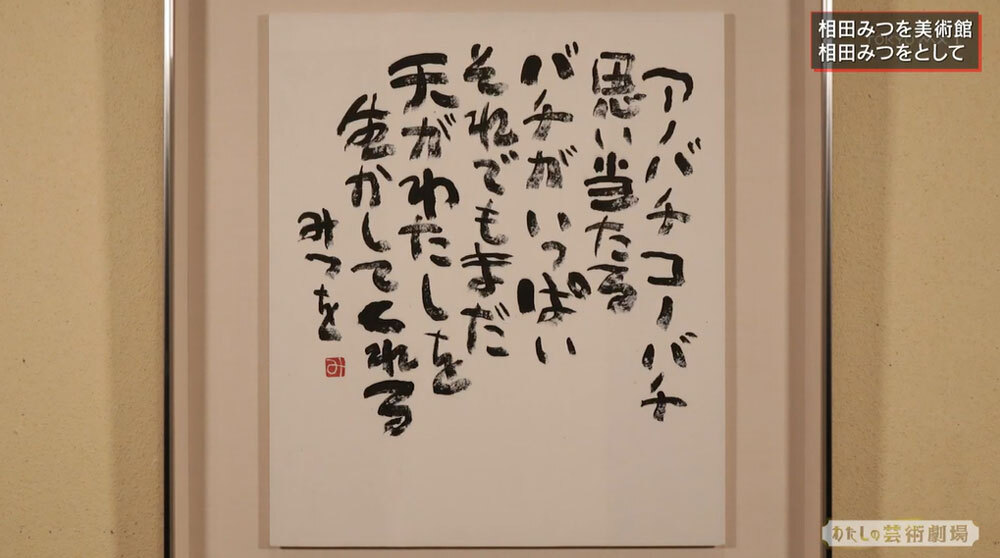 相田みつを美術館
相田みつをとして
アノバチコノバチ
思い当たる
バチがいっぱい
それでもまだ
天がわたしを
生かしてくれる
みつを
み
わたしの芸術劇場